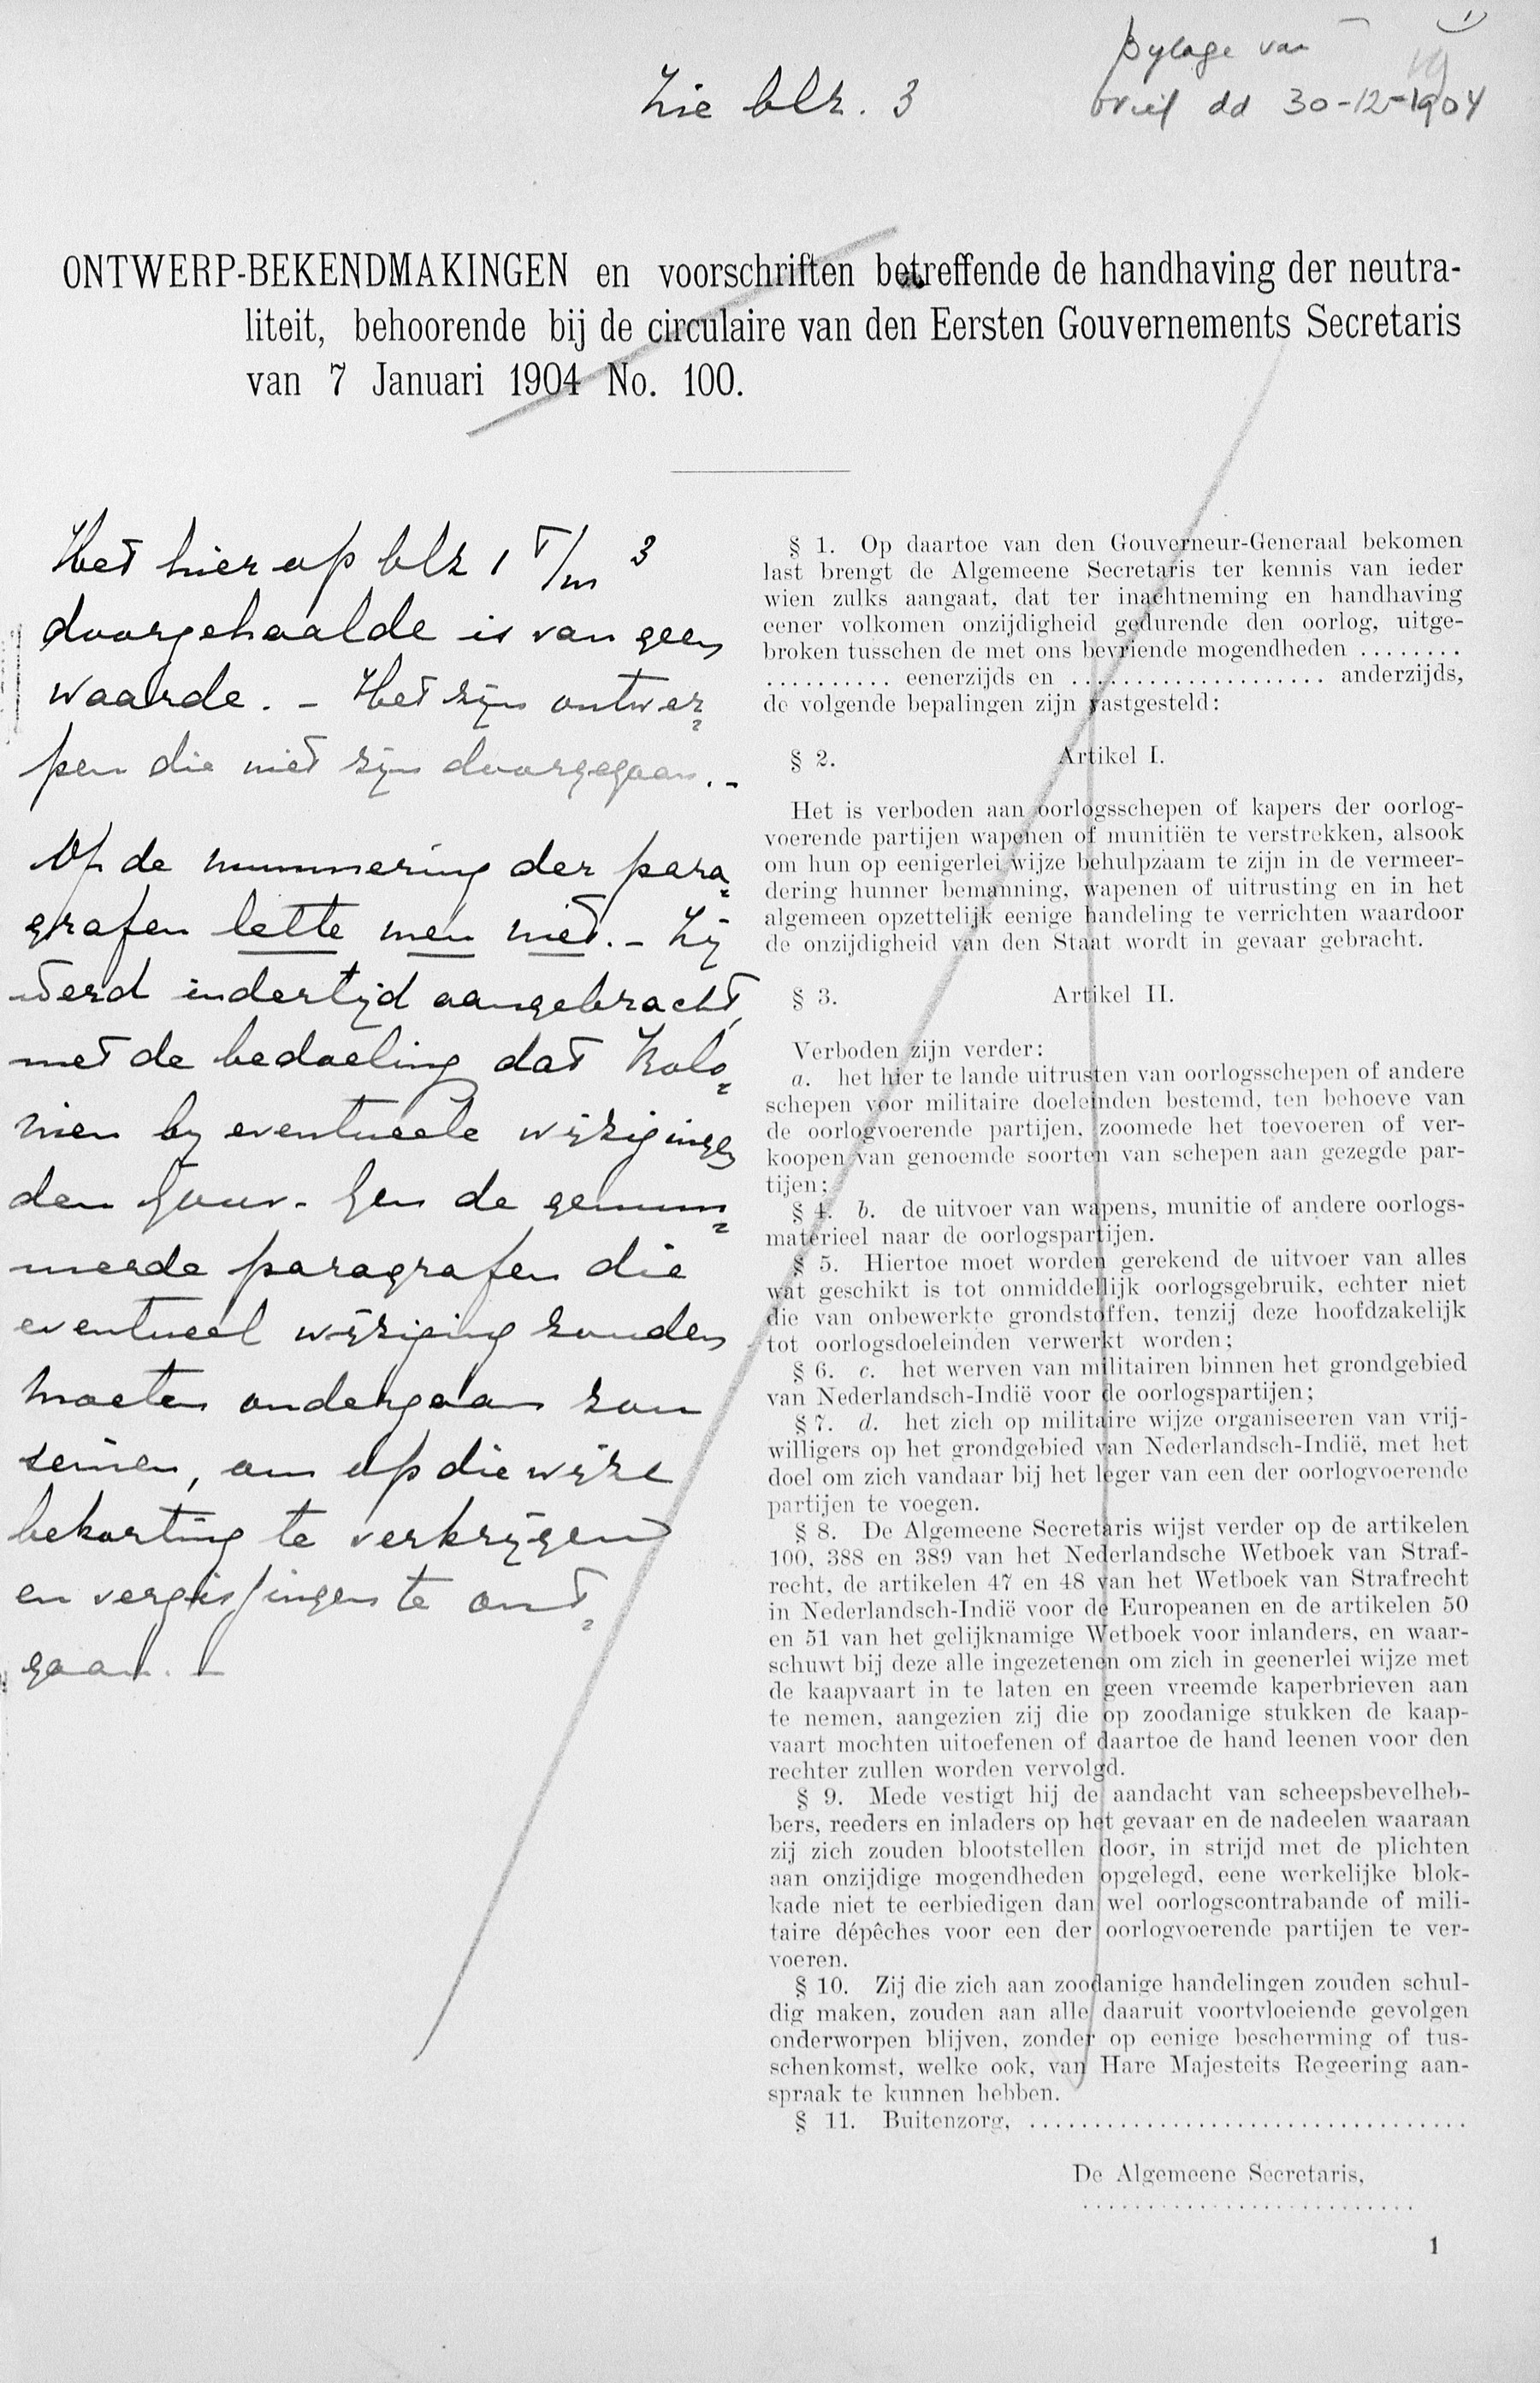 Bylage van
brief dd 30-12-1904
Zie blz. 3
ONTWERP-BEKENDMAKINGEN en voorschriften betreffende de handhaving der neutra-
liteit, behoorende bij de circulaire van den Eersten Gouvernements Secretaris
van 7 Januari 1904 No. 100.
Het hier op blz 1 t/m 3
doorgehaalde is van geen
waarde. - Het zijn ontwer=
pen die niet zijn doorgegaan. -
Op de nummering der para=
grafen lette men niet. - Zij
werd indertijd aangebracht,
met de bedoeling dat Kolo=
nien by eventueele wijzigingen
den Gouv. Gen de genum=
merde paragrafen die
eventueel wijziging zouden
moeten ondergaan zou
seinen, om op die wijze
bekorting te verkrijgen
en vergissingen te ont=
gaan. -
§ 1. Op daartoe van den Gouverneur-Generaal bekomen
last brengt de Algemeene Secretaris ter kennis van ieder
wien zulks aangaat, dat ter inachtneming en handhaving
eener volkomen onzijdigheid gedurende den oorlog, uitge-
broken tusschen de met ons bevriende mogendheden ........
.......... eenerzijds en .................... anderzijds,
de volgende bepalingen zijn vastgesteld:
§ 2. Artikel I.
Het is verboden aan oorlogsschepen of kapers der oorlog-
voerende partijen wapenen of munitiën te verstrekken, alsook
om hun op eenigerlei wijze behulpzaam te zijn in de vermeer-
dering hunner bemanning, wapenen of uitrusting en in het
algemeen opzettelijk eenige handeling te verrichten waardoor
de onzijdigheid van den Staat wordt in gevaar gebracht.
§ 3. Artikel II.
Verboden zijn verder:
a. het hier te lande uitrusten van oorlogsschepen of andere
schepen voor militaire doeleinden bestemd, ten behoeve van
de oorlogvoerende partijen, zoomede het toevoeren of ver-
koopen van genoemde soorten van schepen aan gezegde par-
tijen;
§ 4. b. de uitvoer van wapens, munitie of andere oorlogs-
materieel naar de oorlogspartijen.
§ 5. Hiertoe moet worden gerekend de uitvoer van alles
wat geschikt is tot onmiddellijk oorlogsgebruik, echter niet
die van onbewerkte grondstoffen, tenzij deze hoofdzakelijk
tot oorlogsdoeleinden verwerkt worden;
§ 6. c. het werven van militairen binnen het grondgebied
van Nederlandsch-Indië voor de oorlogspartijen;
§ 7. d. het zich op militaire wijze organiseeren van vrij-
willigers op het grondgebied van Nederlandsch-Indië, met het
doel om zich vandaar bij het leger van een der oorlogvoerende
partijen te voegen.
§ 8. De Algemeene Secretaris wijst verder op de artikelen
100, 388 en 389 van het Nederlandsche Wetboek van Straf-
recht, de artikelen 47 en 48 van het Wetboek van Strafrecht
in Nederlandsch-Indië voor de Europeanen en de artikelen 50
en 51 van het gelijknamige Wetboek voor inlanders, en waar-
schuwt bij deze alle ingezetenen om zich in geenerlei wijze met
de kaapvaart in te laten en geen vreemde kaperbrieven aan
te nemen, aangezien zij die op zoodanige stukken de kaap-
vaart mochten uitoefenen of daartoe de hand leenen voor den
rechter zullen worden vervolgd.
§ 9. Mede vestigt hij de aandacht van scheepsbevelheb-
bers, reeders en inladers op het gevaar en de nadeelen waaraan
zij zich zouden blootstellen door, in strijd met de plichten
aan onzijdige mogendheden opgelegd, eene werkelijke blok-
kade niet te eerbiedigen dan wel oorlogscontrabande of mili-
taire dépêches voor een der oorlogvoerende partijen te ver-
voeren.
§ 10. Zij die zich aan zoodanige handelingen zouden schul-
dig maken, zouden aan alle daaruit voortvloeiende gevolgen
onderworpen blijven, zonder op eenige bescherming of tus-
schenkomst, welke ook, van Hare Majesteits Regeering aan-
spraak te kunnen hebben.
§ 11. Buitenzorg, ..................................
De Algemeene Secretaris,
..........................
1